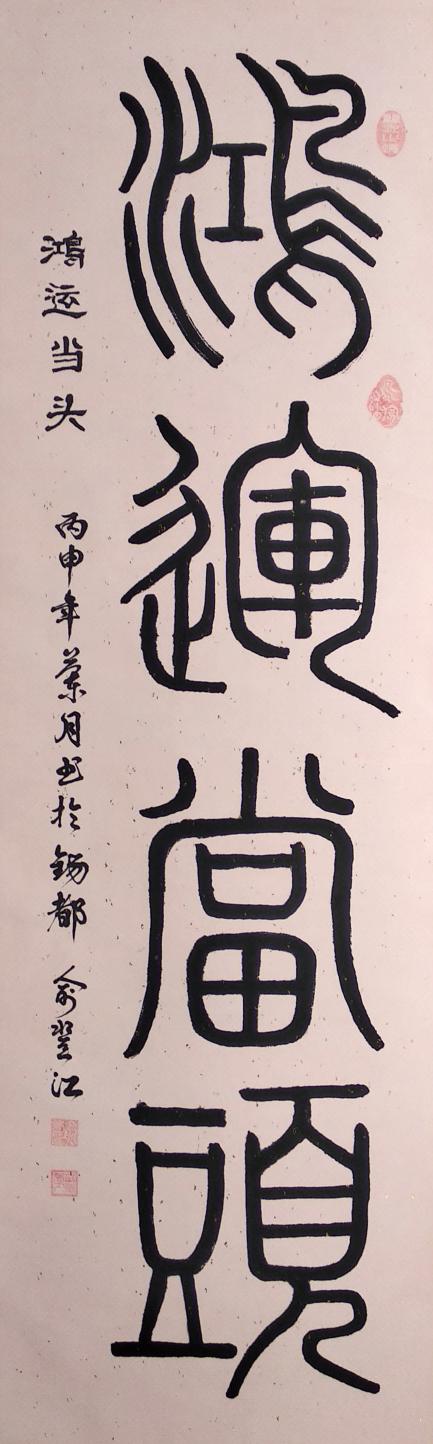 鴻運當頭
鸿运当头 丙申年兰月书於锡都 俞登江